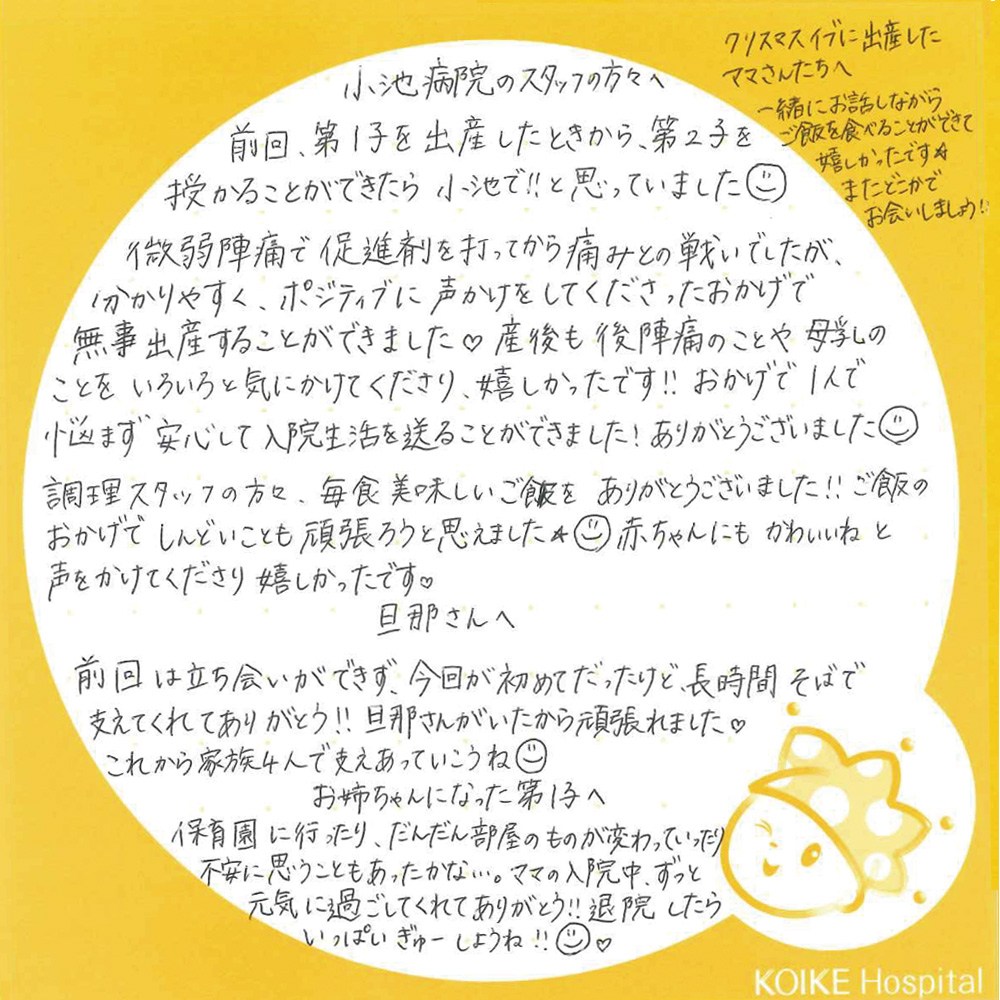 小池病院のスタッフの方々へ
前回、第1子を出産したときから、第2子を
授かることができたら 小池で!!と思っていました☺
微弱陣痛で促進剤を打ってから痛みとの戦いでしたが、
分かりやすく、ポジティブに声かけをしてくださったおかげで
無事出産することができました♡ 産後も後陣痛のことや母乳の
ことをいろいろと気にかけてくださり、嬉しかったです!! おかげで1人で
悩まず安心して入院生活を送ることができました! ありがとうございました☺
調理スタッフの方々、毎食美味しいご飯を ありがとうございました!! ご飯の
おかげでしんどいことも頑張ろうと思えました★☺赤ちゃんにも かわいいね と
声をかけてくださり嬉しかったです♡
旦那さんへ
前回は立ち会いができず、今回が初めてだったけど、長時間そばで
支えてくれてありがとう!! 旦那さんがいたから頑張れました♡
これから家族4人で支えあっていこうね☺
お姉ちゃんになった第1子へ
保育園に行ったり、だんだん部屋のものが変わっていったり
不安に思うこともあったかな…。ママの入院中、ずっと
元気に過ごしてくれてありがとう!! 退院したら
いっぱいぎゅーしようね!!☺♡
クリスマスイブに出産した
ママさんたちへ
一緒にお話しながら
ご飯を食べることができて
嬉しかったです★
またどこかで
お会いしましょう!!
KOIKE Hospital